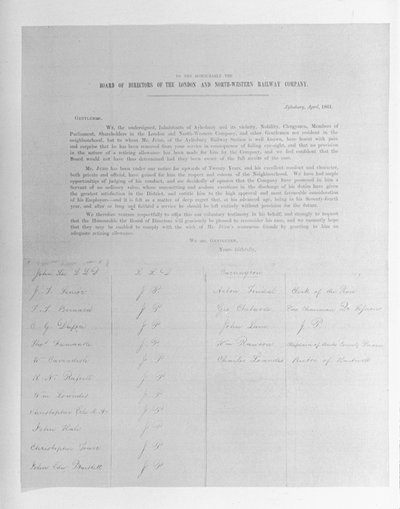 TO THE HONOURABLE THE
BOARD OF DIRECTORS OF THE LONDON AND NORTH-WESTERN RAILWAY COMPANY.
Aylesbury, April, 1861.
GENTLEMEN,
We, the undersigned, Inhabitants of Aylesbury and its vicinity, Nobility, Clergymen, Members of
Parliament, Shareholders in the London and North-Western Company, and other Gentlemen not resident in the
neighbourhood, but to whom Mr. of the Aylesbury Railway Station is well known, have heard with pain
and surprise that he has been removed from your service in consequence of failing eye-sight, and that no provision
in the nature of a retiring allowance has been made for him by the Company, and we feel confident that the
Board would not have thus determined had they been aware of the full merits of the case.
Mr. has been under our notice for upwards of Twenty Years, and his excellent conduct and character,
both private and official, have gained for him the respect and esteem of the Neighbourhood. We have had ample
opportunities of judging of his conduct, and are decidedly of opinion that the Company have possessed in him a
Servant of no ordinary value, whose unremitting and zealous exertions in the discharge of his duties have given
the greatest satisfaction in the District, and entitle him to the high approval and most favourable consideration
of his Employers—and it is felt as a matter of deep regret that, at his advanced age, being in his Seventy-fourth
year, and after so long and faithful a service he should be left entirely without provision for the future.
We therefore venture respectfully to offer this our voluntary testimony in his behalf, and strongly to request
that the Honourable the Board of Directors will graciously be pleased to reconsider his case, and we earnestly hope
that they may be enabled to comply with the wish of Mr. numerous friends by granting to him an
adequate retiring allowance.
We are, GENTLEMEN,
Yours faithfully,
John Lee L L D Carrington
J. P. Acton Tindal Clerk of the Peace
Bernard J P Geo
C. G. Dupre J P John
J. P. Wm Rawson
Wm Cavendish J P Charles Lowndes Rector of Hartwell
J P
Wm Lowndes J P
Christopher J P
John Hale J P
Christopher Tower J P
John Edw Bartlett J P